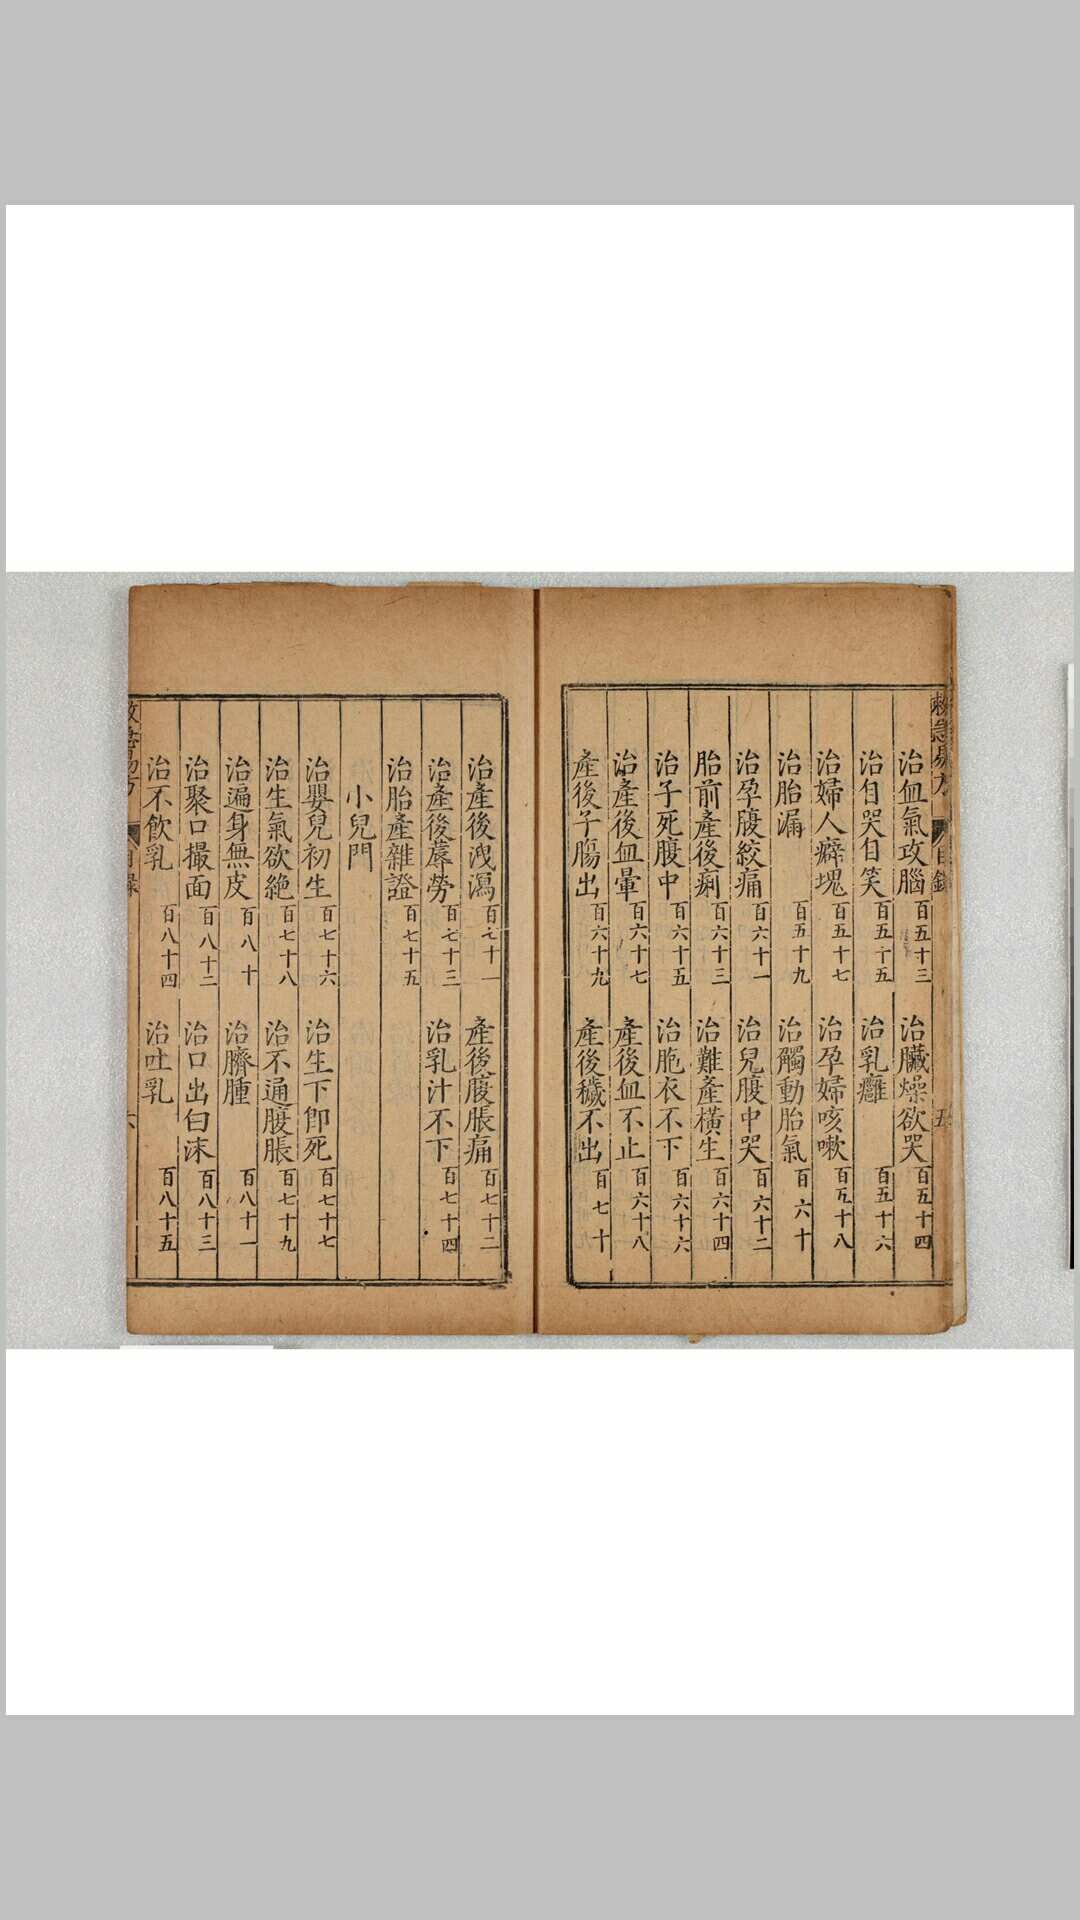 救急易方 目錄 五
治血氣攻腦 百五十三 治臟燥欲哭 百五十四
治自哭自笑 百五十五 治乳癰 百五十六
治婦人癖塊 百五十七 治孕婦咳嗽 百五十八
治胎漏 百五十九 治觸動胎氣 百六十
治孕腹絞痛 百六十一 治兒腹中哭 百六十二
胎前產後痢 百六十三 治難產橫生 百六十四
治子死腹中 百六十五 治胞衣不下 百六十六
治產後血暈 百六十七 產後血不止 百六十八
產後子腸出 百六十九 產後穢不出 百七十
治產後洩瀉 百七十一 產後腹脹痛 百七十二
治產後蓐勞 百七十三 治乳汁不下 百七十四
治胎產雜證 百七十五
小兒門
治嬰兒初生 百七十六 治生下即死 百七十七
治生氣欲絕 百七十八 治不通腹脹 百七十九
治遍身無皮 百八十 治臍腫 百八十一
治聚口撮面 百八十二 治口出白沫 百八十三
治不飲乳 百八十四 治吐乳 百八十五
救急易方 目錄 六